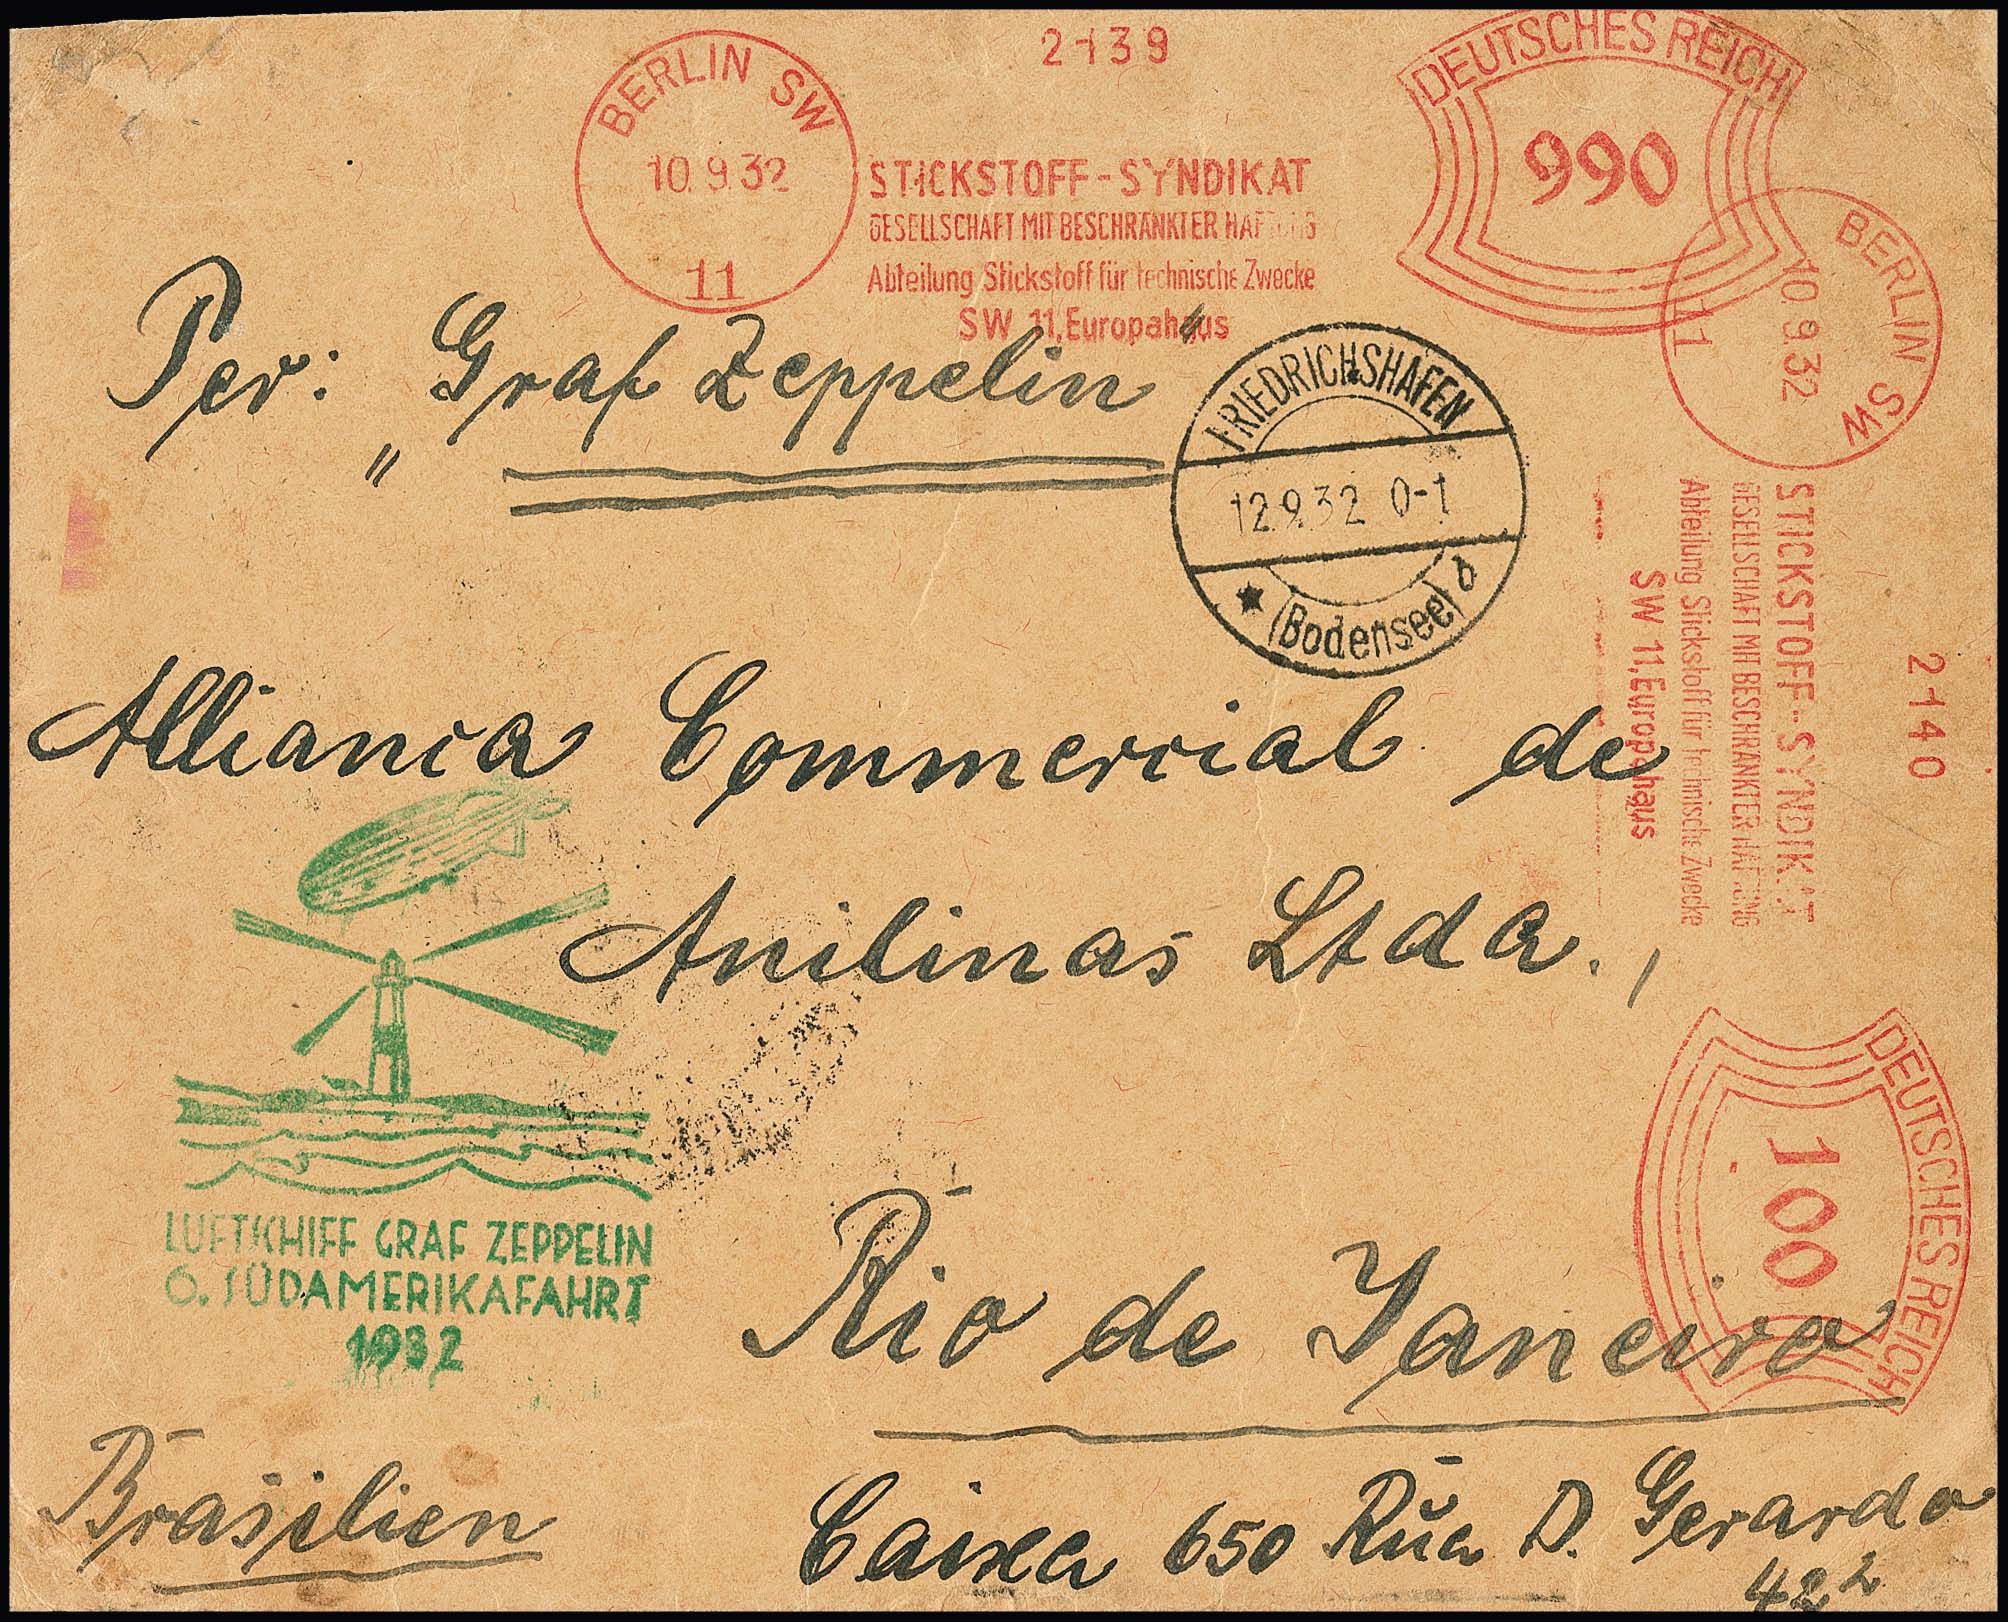 2139
BERLIN SW
10.9.32
11
STICKSTOFF-SYNDIKAT
GESELLSCHAFT MIT BESCHRÄNKTER HAFTUNG
Abteilung Stickstoff für technische Zwecke
SW 11, Europahaus
DEUTSCHES REICH
990
BERLIN SW
10.9.32
11
STICKSTOFF-SYNDIKAT
GESELLSCHAFT MIT BESCHRÄNKTER HAFTUNG
Abteilung Stickstoff für technische Zwecke
SW 11, Europahaus
2140
DEUTSCHES REICH
100
Per: „Graf Zeppelin"
FRIEDRICHSHAFEN
12.9.32 0-1
* (Bodensee) b
Allianca Commercial de
Anilinas Ltda.,
LUFTSCHIFF GRAF ZEPPELIN
6. SÜDAMERIKAFAHRT
1932
Rio de Janeiro
Brasilien
Caixa 650 Rua D. Gerardo
42 2